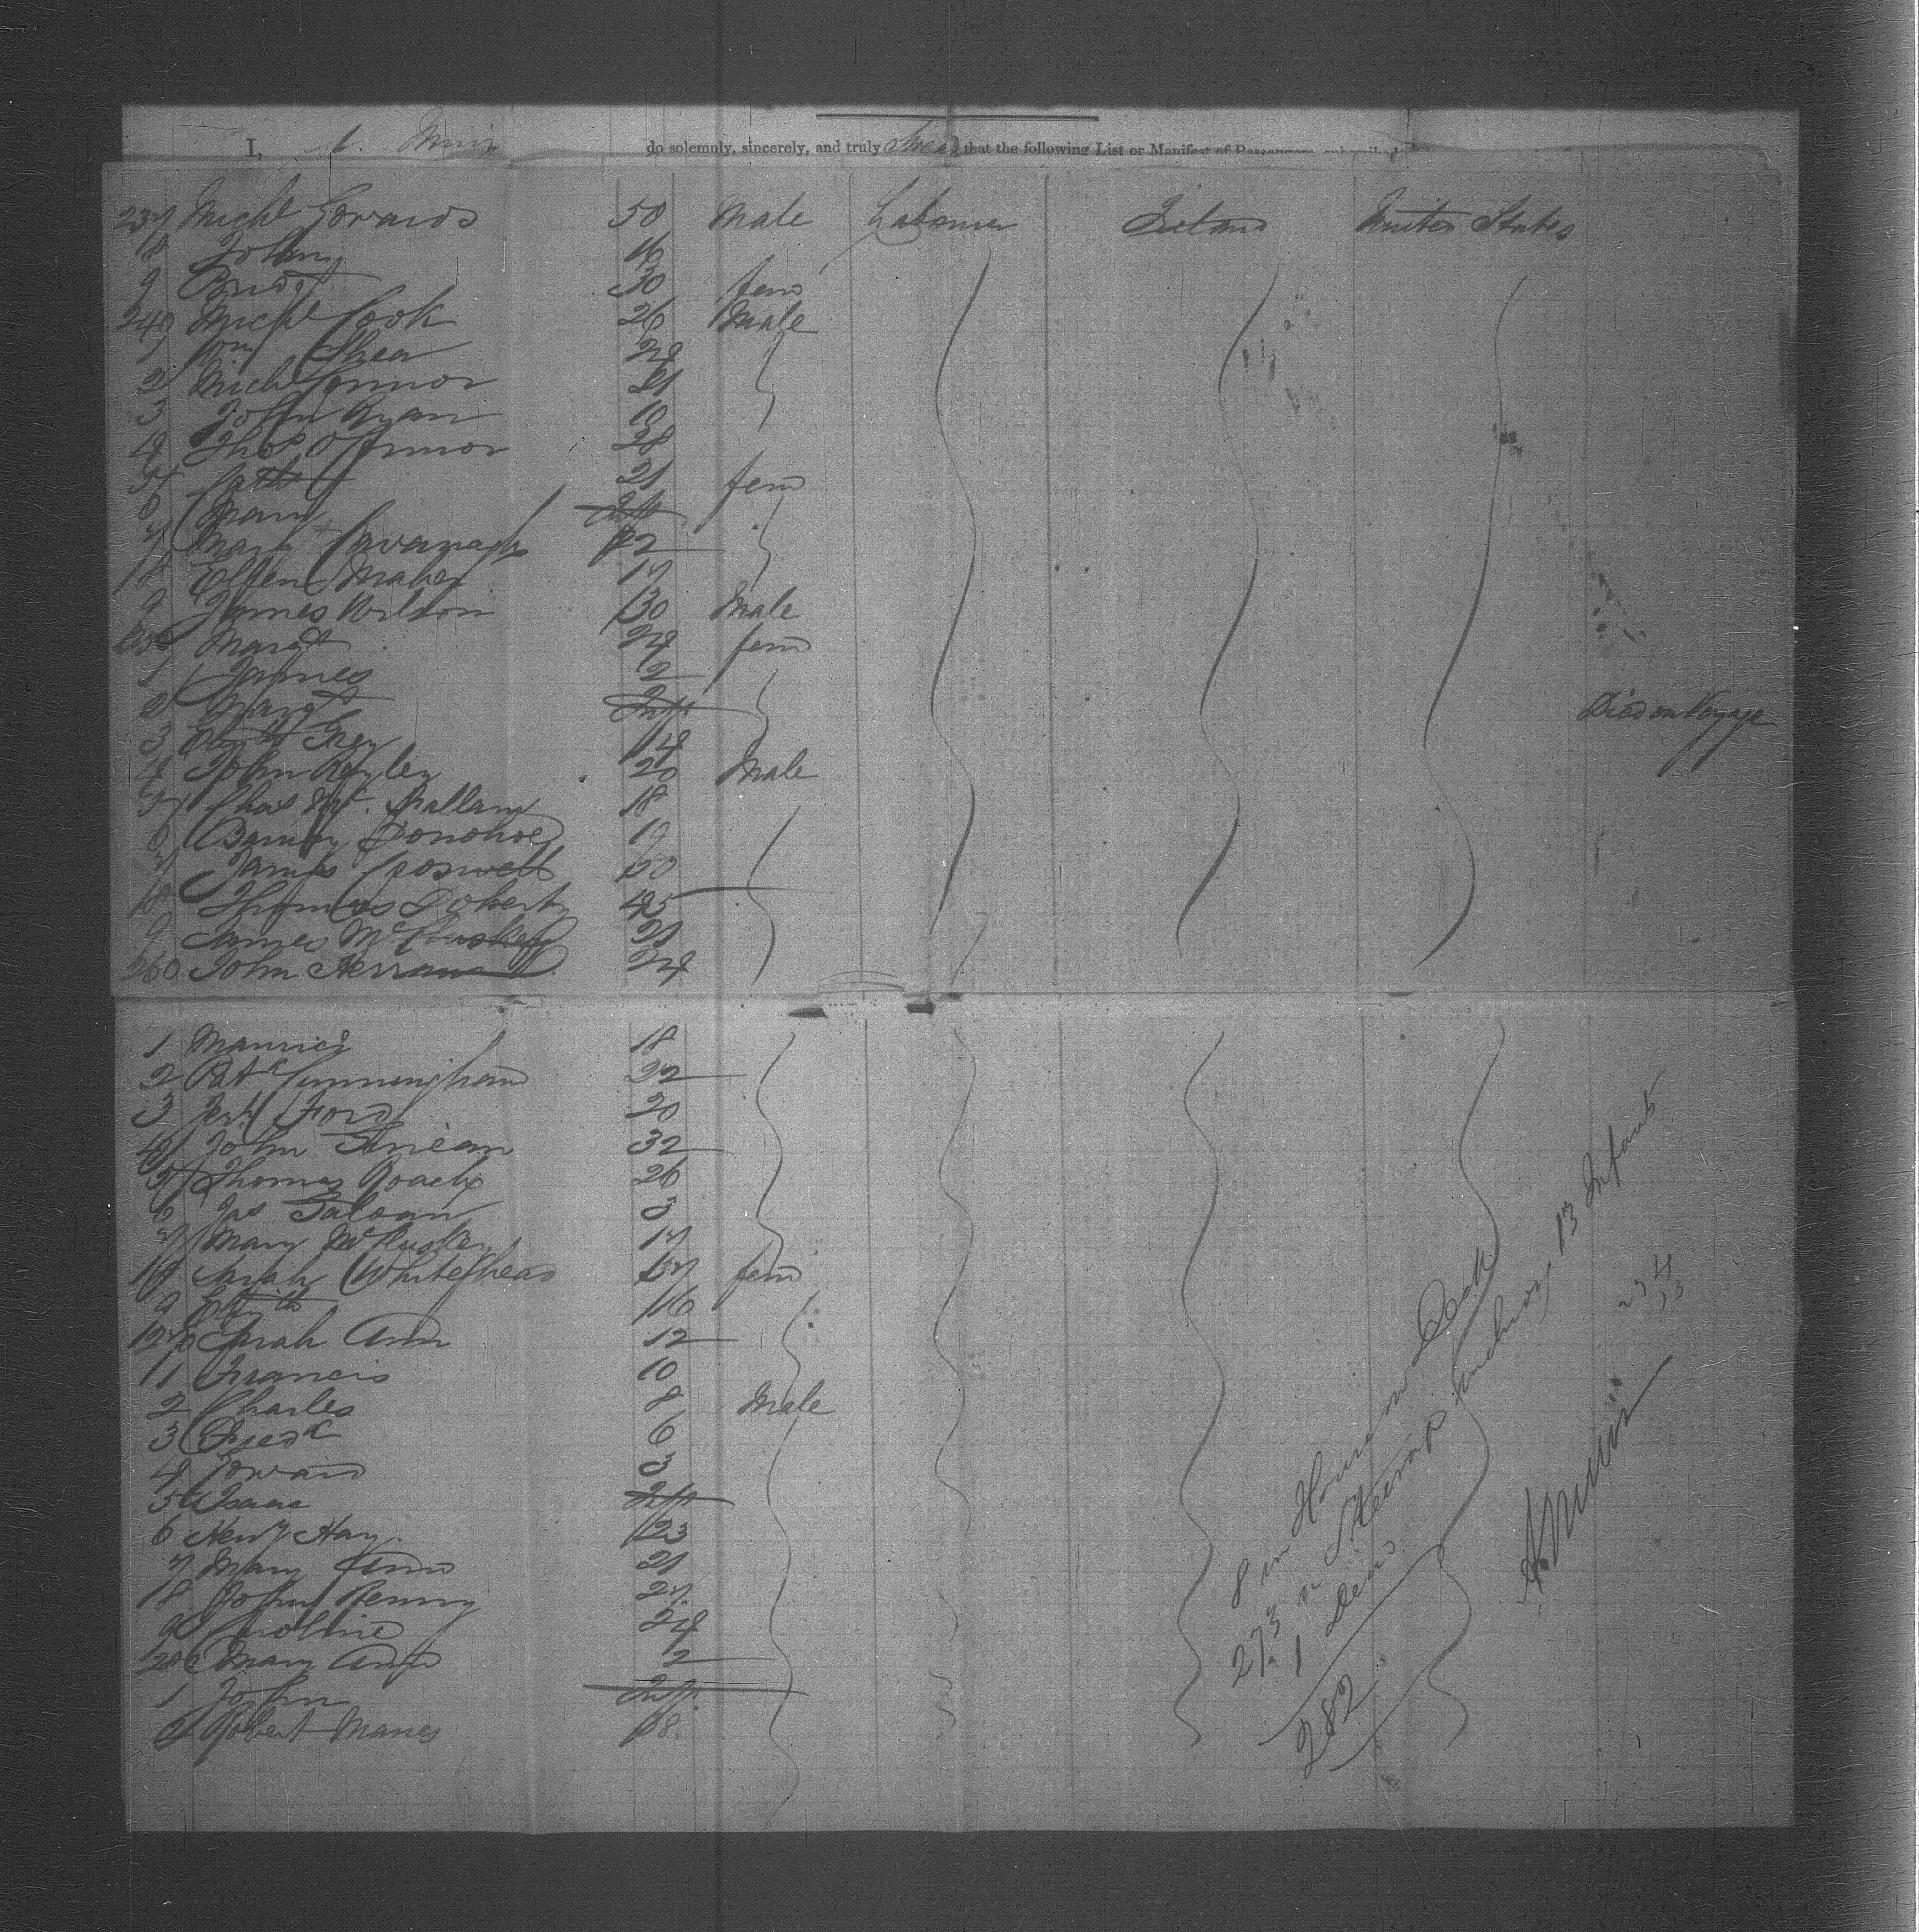 I, A. Muir do solemnly, sincerely, and truly swear that the following List or Manifest of Passengers, subscribed
237 Michl Edwards 50 Male Labourer Ireland United States
8 John 16
9 Bridgt 30 fem
240 Michl Cook 26 Male
1 Wm Shea 24
2 Michl Connor 21
3 John Ryan 10
4 Thos O'Connor 28
5 Cath 21 fem
6 Mary Inft
7 Mary Cavanagh 22
8 Ellen Maher 17
9 James Wilson 30 Male
250 Margt 24 fem
1 James 2
2 Margt Inft Died on Voyage
3 Elizth Grey 14
4 John Reyley 20 Male
5 Chas Mc. Callam 18
6 Barney Donohoe 19
7 James Croswell 50
8 Thomas Doherty 45
9 James McCluskey 21
260 John Herran 24
1 Maurice 18
2 Patk Cunningham 22
3 Jerh Ford 20
4 John Finean 32
5 Thomas Roach 26
6 Jas 3
7 Mary McCluskey 17
8 Sarah Whitehead 37 fem
9 Elizth 16
270 Sarah Ann 12
11 Francis 10
2 Charles 8 Male
3 Fredk 6
4 Edward 3
5 Isaac Inft
6 Henry Hay 23
7 Mary Ann 21
8 John Kenny 27
9 Caroline 24
280 Mary Ann 2
1 John Inft
2 Robert Manes 18
8 in House on Deck
273 " Steerage including 13 Infants
1 Died
282
274
13
A Muir